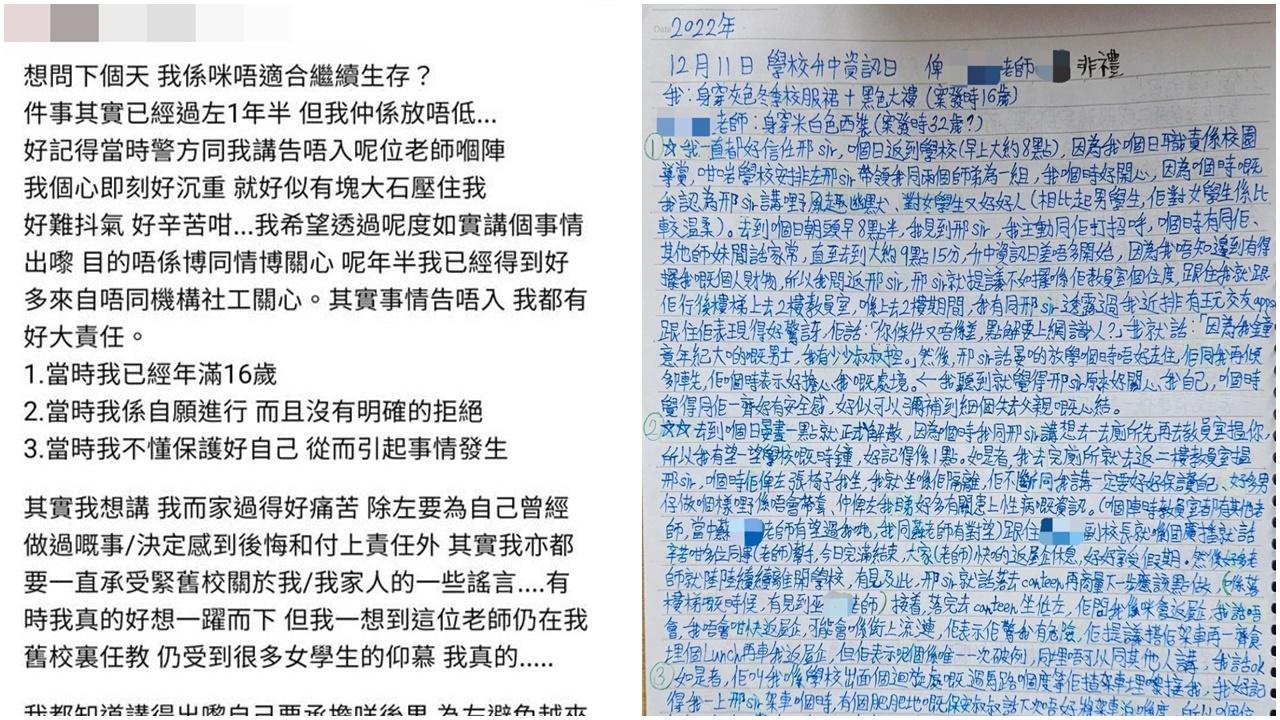 想問下個天 我係咪唔適合繼續生存？
件事其實已經過左1年半 但我仲係放唔低...
好記得當時警方同我講告唔入呢位老師嗰陣
我個心即刻好沉重 就好似有塊大石壓住我
好難抖氣 好辛苦咁...我希望透過呢度如實講個事情
出嚟 目的唔係博同情博關心 呢年半我已經得到好
多來自唔同機構社工關心。其實事情告唔入 我都有
好大責任。
1.當時我已經年滿16歲
2.當時我係自願進行 而且沒有明確的拒絕
3.當時我不懂保護好自己 從而引起事情發生
其實我想講 我而家過得好痛苦 除左要為自己曾經
做過嘅事/決定感到後悔和付上責任外 其實我亦都
要一直承受緊舊校關於我/我家人的一些謠言....有
時我真的好想一躍而下 但我一想到這位老師仍在我
舊校裏任教 仍受到很多女學生的仰慕 我真的.....
我都知道講得出嚟自己要承擔咩後果 為左避免越來
Date 2022年
12月11日 學校升中資訊日 俾 老師 非禮
我：身穿灰色冬季校服裙＋黑色大褸 (案發時16歲)
老師：身穿米白色西裝 (案發時32歲？)
① ☆我一直都好信任邢sir，嗰日返到學校(早上大約8點)，因為我嗰日職責係校園
導賞，咁啱學校安排左邢sir帶領我同兩個師弟為一組，我嗰時好開心，因為嗰時嘅
我認為邢sir講嘢風趣幽默、對女學生又好好人(相比起男學生，佢對女學生係比
較溫柔)。去到嗰日朝頭早8點半，我見到邢sir，我主動同佢打招呼，嗰時有同佢、
其他師妹閒話家常，直至去到大約9點15分，升中資訊日差唔多開始，因為我唔知邊到有得
擺我嘅個人財物，所以我問返邢sir，邢sir就提議不如擺係佢教員室個位度，跟住我就跟
佢行後樓梯上去2樓教員室，喺上去2樓期間，我有同邢sir透露過我近排有玩交友apps
跟住佢表現得好驚訝，佢話：「你條件又唔係差，點解要上網識人？」我就話：「因為我鍾
意年紀大啲嘅男士，我有少少叔叔控。」然後，邢sir話晏啲放學嗰時唔好走住，佢同我再傾
多陣先，佢嗰時表示好擔心我嘅處境。←我聽到就覺得邢sir原來好關心我自己，嗰時
覺得同佢一齊好有安全感，好似可以彌補到細個失去父親嘅心結。
② ☆☆去到嗰日晏晝一點就正式解散，因為嗰時我同邢sir講想去一去廁所先再去教員室搵你，
所以我有望一望學校嘅時鐘，好記得係1點。如是者，我去完廁所就去返二樓教員室搵
邢sir，嗰時佢俾左張椅子我坐，我就坐喺佢隔離，佢不斷同我講一定要好好保護自己、好多男
仔做嗰樣嘢係唔會帶套、仲俾左我睇好多有關患上性病嘅資訊。(嗰陣時教員室都有其他老
師，當中蘇 老師有望過我哋，我同蘇老師有對望)跟住 副校長就喺個廣播就話
辛苦咁多位同事(老師)幫手，今日完滿結束，大家(老師)快啲返屋企休息，好好享受假期。然後好多老
師就陸陸續續離開學校，有見及此，邢sir就話落去canteen再商量下一步應該點做，(係落
樓梯嘅時候，有見到巫 老師)接著，落完去canteen坐低左，佢問我係咪會返屋企，我話唔
會，我唔會咁快返屋企，可能會喺街上流連，佢表示佢驚我有危險，佢提議搭佢架車再一齊食
埋個Lunch再車我返屋企，但佢表示呢個係唯一一次破例，同埋唔可以同其他人講，我話ok
③ 如是者，佢叫我喺學校出面個迴旋處嘅過馬路嗰度等佢揸架車埋嚟接我，我好記